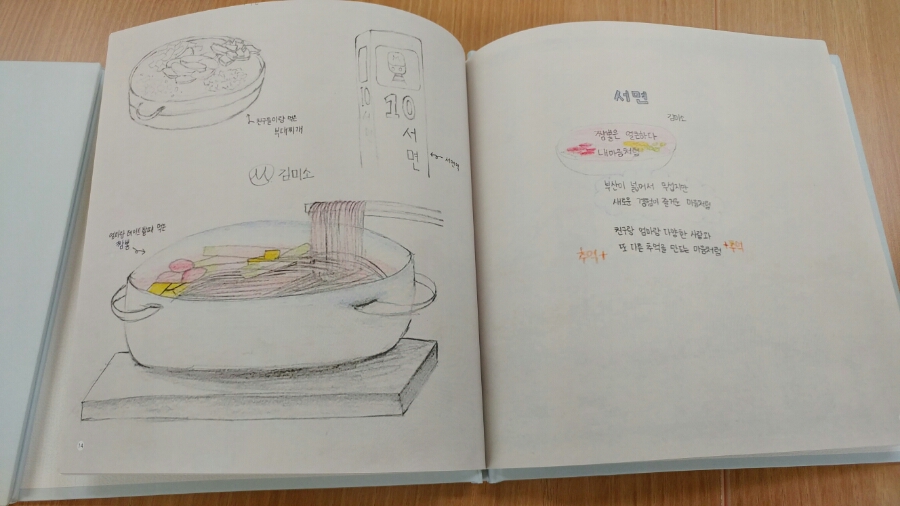 친구들이랑 먹은
부대찌개
10
서
면
서면역
김미소
먹은
짬뽕
14
서면
김미소
짬뽕은 얼큰하다
내마음처럼
부산이 넓어서 무섭지만
새로운 경험이 즐거운 마음처럼
친구랑 엄마랑 다양한 사람과
또 다른 추억을 만드는 마음처럼
추억+
+추억